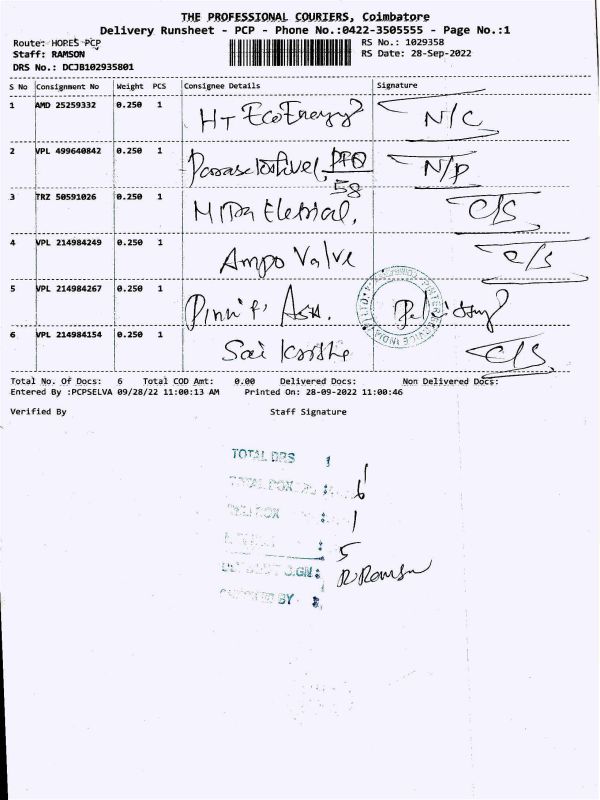 THE PROFESSIONAL COURIERS, Coimbatore
Delivery Runsheet - PCP - Phone No.:0422-3505555 - Page No.:1
Route: HOPES PCP
RS No.: 1029358
Staff: RAMSON
RS Date: 28-Sep-2022
DRS No.: DCJB102935801
S No Consignment No Weight PCS Consignee Details Signature
1 AMD 25259332 0.250 1 HT EcoEnergy N/C
2 VPL 499640842 0.250 1 N/P
58
3 TRZ 50591026 0.250 1 C/S
4 VPL 214984249 0.250 1 Ampo Valve C/S
5 VPL 214984267 0.250 1
6 VPL 214984154 0.250 1 Sai C/S
Total No. Of Docs: 6 Total COD Amt: 0.00 Delivered Docs: Non Delivered Docs:
Entered By :PCPSELVA 09/28/22 11:00:13 AM Printed On: 28-09-2022 11:00:46
Verified By Staff Signature
TOTAL DRS : 1
TOTAL DOX : 6
: 1
: 5
SIGN : R Ramson
CHECKED BY :